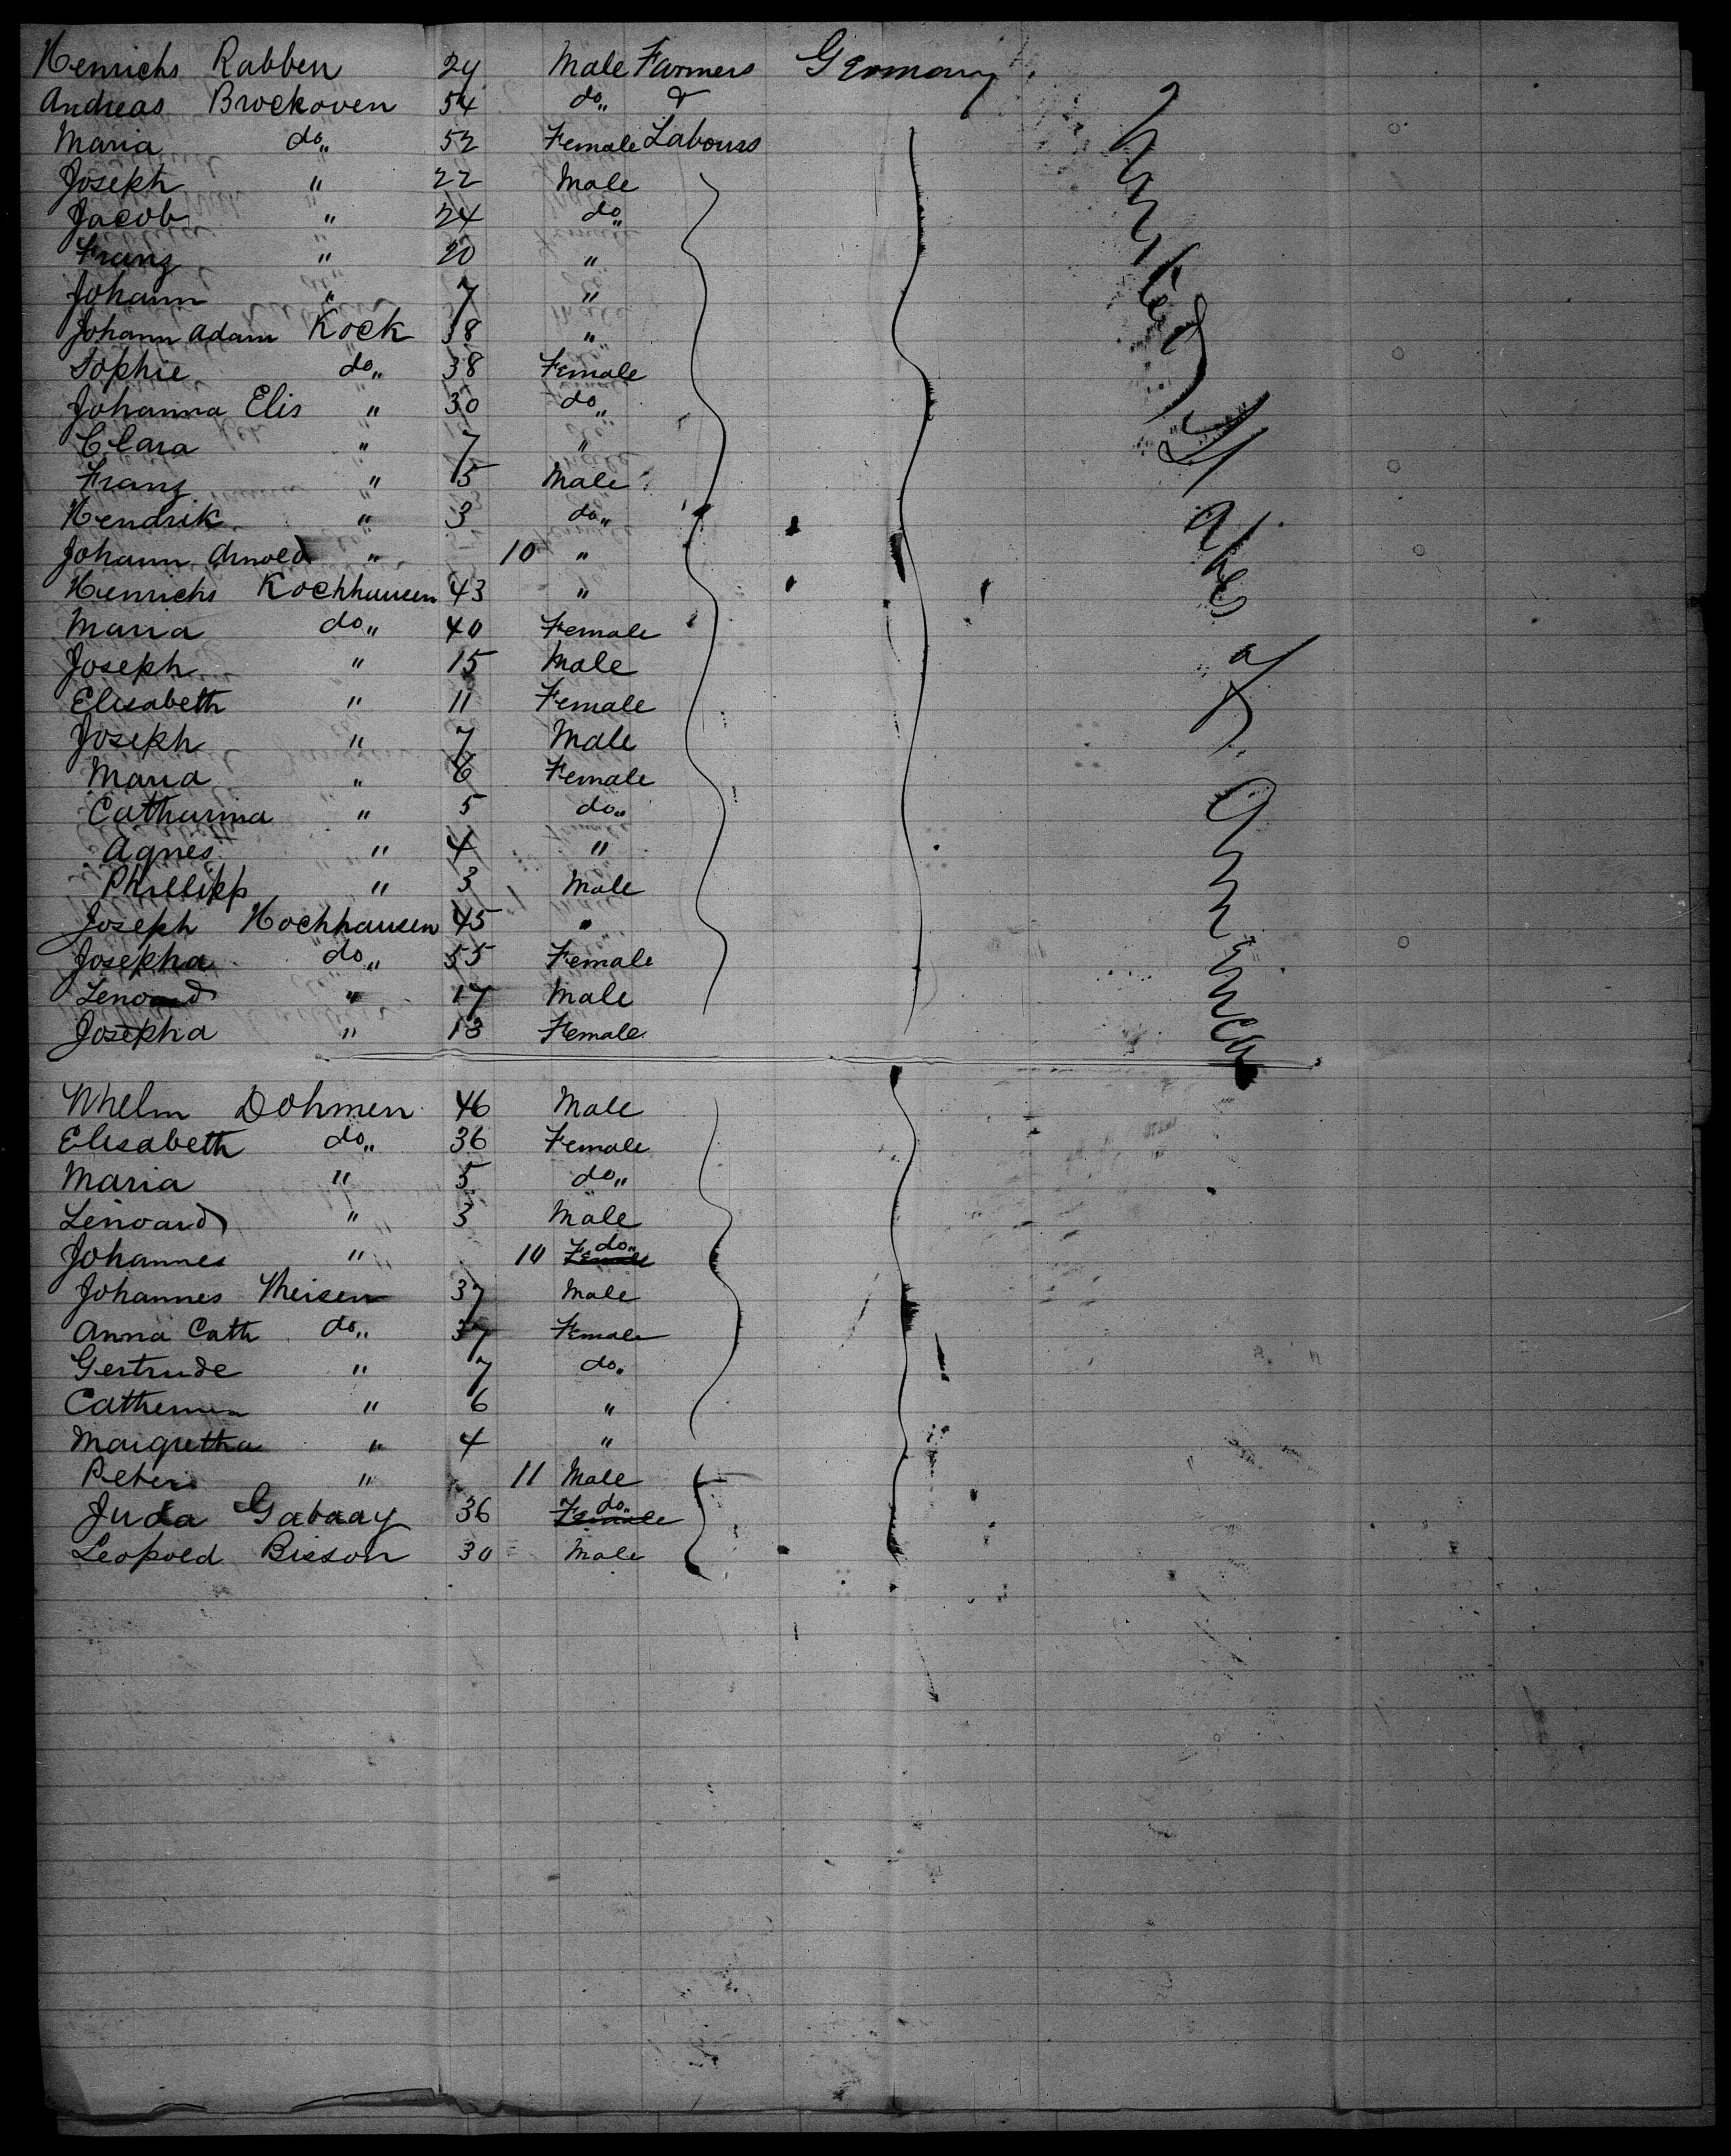 Henrichs Rabben 24 Male Farmers Germany
Andreas Brockoven 54 do „ &
Maria do „ 52 Female Labours
Joseph " 22 Male
Jacob " 24 do „
Franz " 20 "
Johann " 7 "
Johann Adam Kock 38 "
Sophie do „ 38 Female
Johanna Elis " 30 do „
Clara " 7 "
Franz " 5 Male
Hendrik " 3 do „
Johann Arnold " 10 "
Henrichs Kochhausen 43 "
Maria do „ 40 Female
Joseph " 15 Male
Elisabeth " 11 Female
Joseph " 7 Male
Maria " 6 Female
Catharina " 5 do „
Agnes " 4 "
Phillipp " 3 Male
Joseph Hochhausen 45 "
Josepha do „ 55 Female
Lenoard " 17 Male
Josepha " 13 Female
Whelm Dohmen 46 Male
Elisabeth do „ 36 Female
Maria " 5 do „
Lenoard " 3 Male
Johannes " 10 Female do „
Johannes Theisen 37 Male
Anna Cath do „ 37 Female
Gertrude " 7 do „
" 6 "
Margretha " 4 "
Peter " 11 Male
Juda Gabaay 36 Female do „
Leopold Bisson 30 Male
United States of America